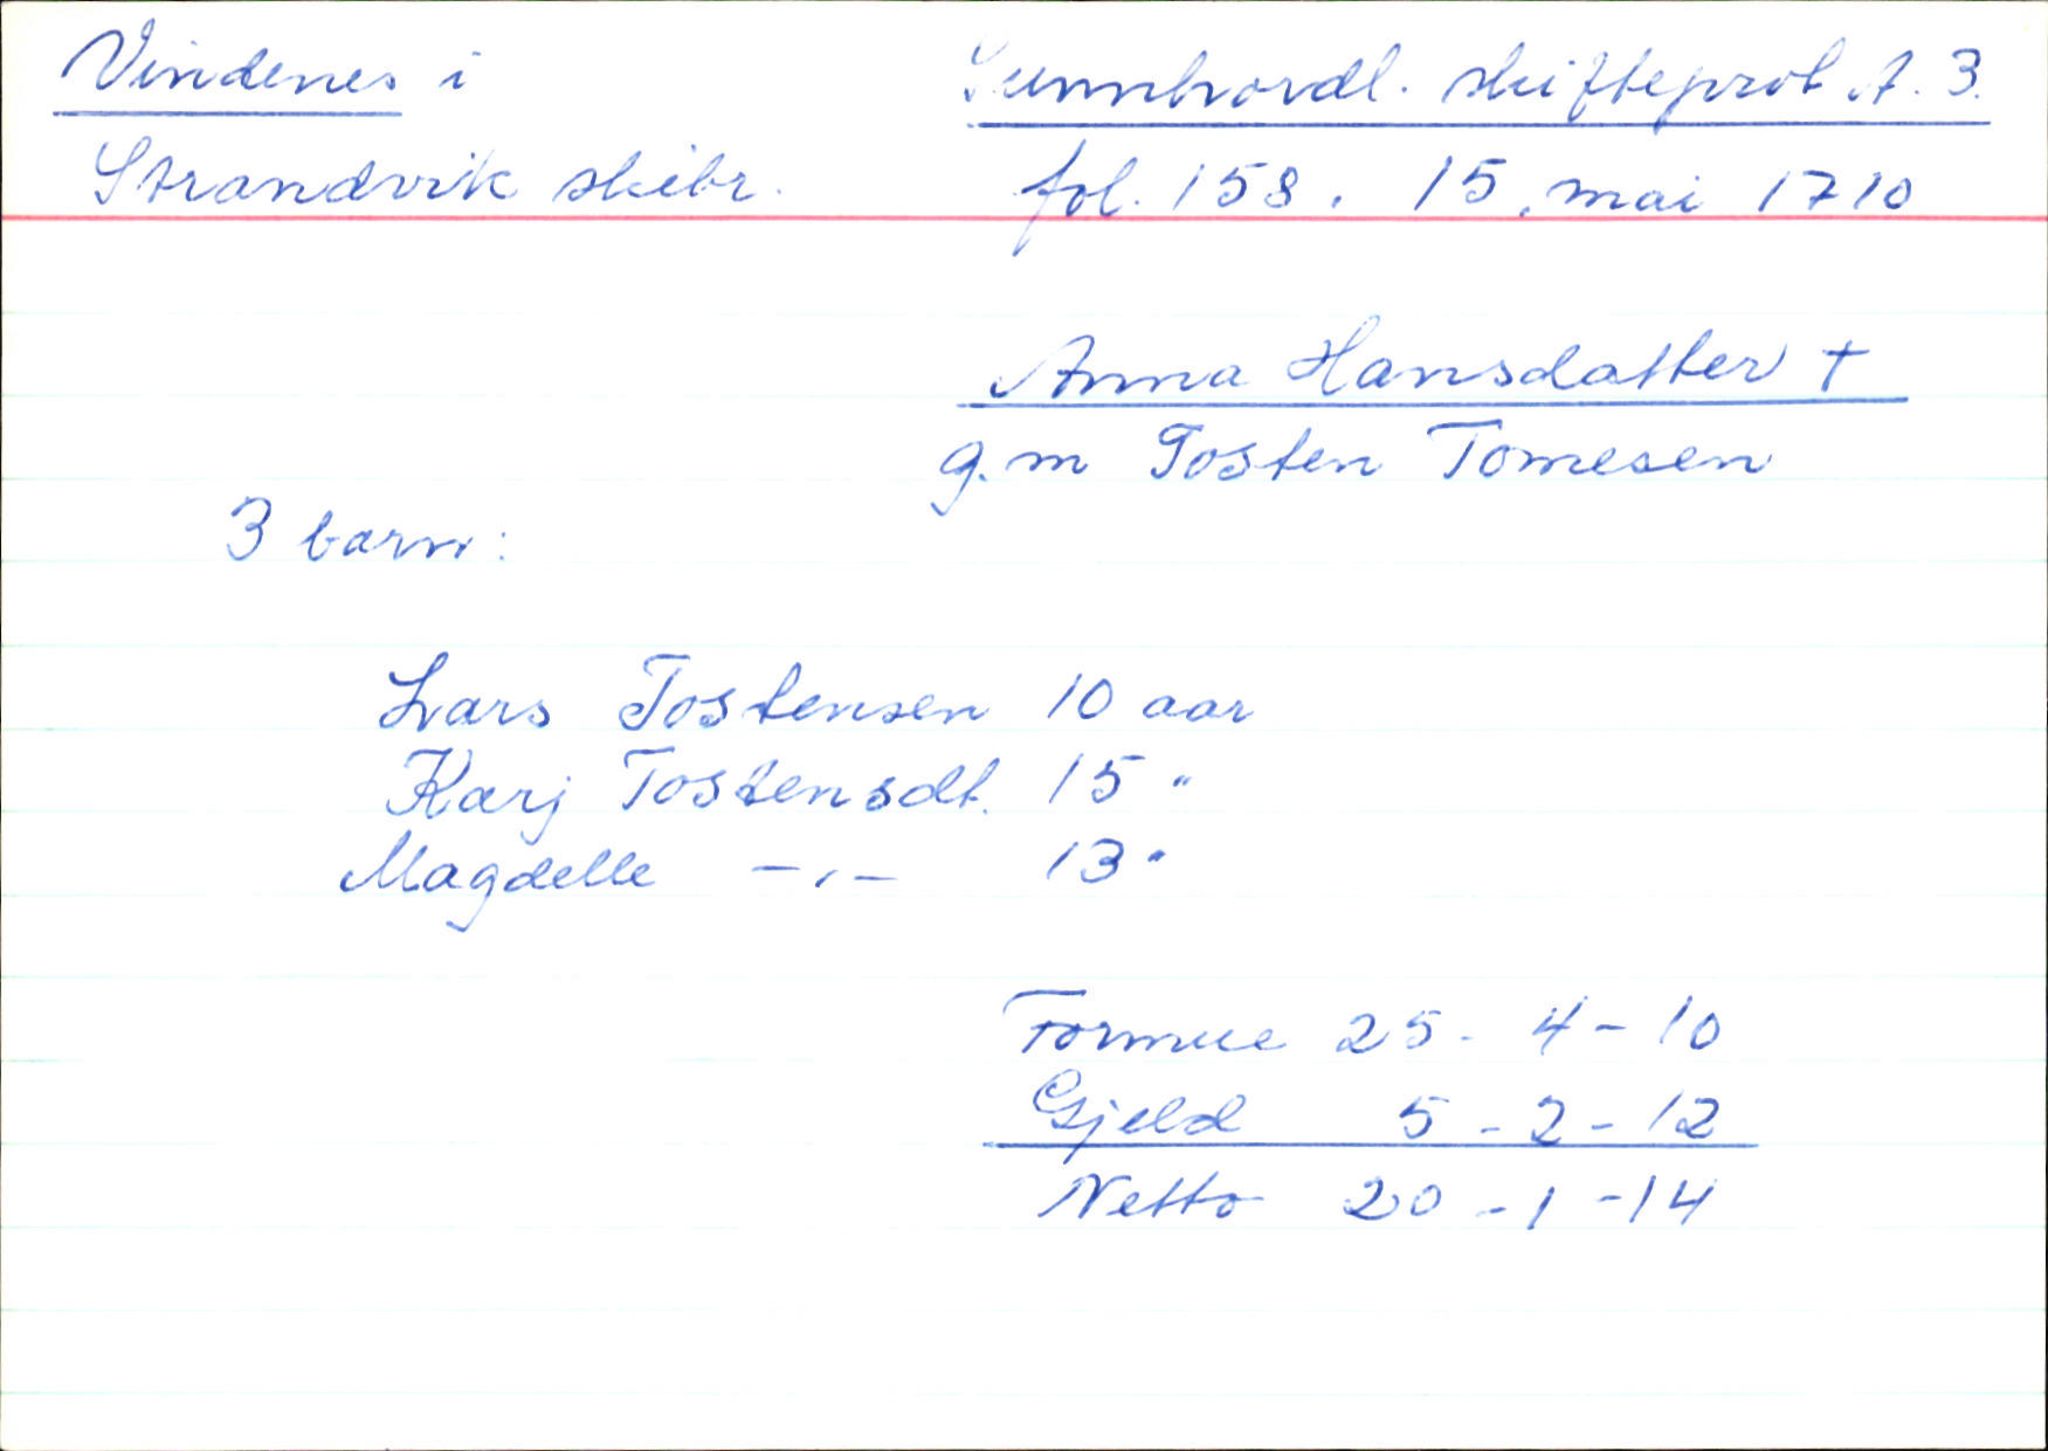 Vindenes i
Sunnhordl. skifteprot A. 3.
Strandvik skibr.
fol. 158. 15. mai 1710
Anna Hansdatter +
g. m Tosten Tomesen
3 barn:
Lars Tostensen 10 aar
Karj Tostensdt. 15 "
Magdelle -"- 13 "
Formue 25 - 4 - 10
Gjeld 5 - 2 - 12
Netto 20 - 1 - 14